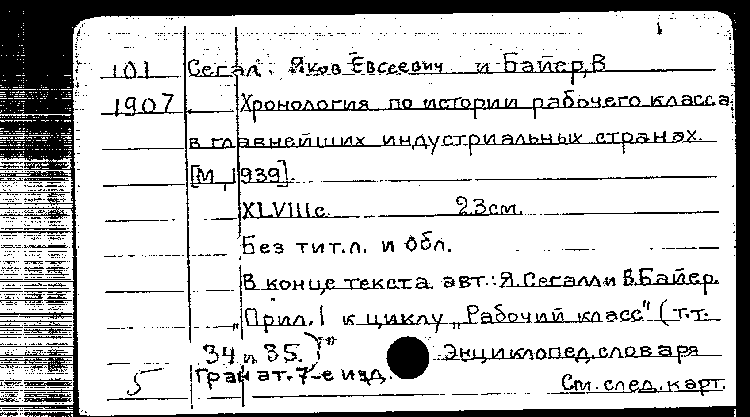 101 Сегал. Яков Евсеевич и Байер, В
1907 Хронология по истории рабочего класса
в главнейших индустриальных странах.
[М, 1939].
XLVIIIс. 23см.
Без тит.л. и обл.
В конце текста авт.: Я.Сегал и В.Байер.
„Прил. 1 к циклу „Рабочий класс" (т.т.
34 и 35.)" Энциклопед. словаря
5 Гранат. 7-е изд. См. след. карт.